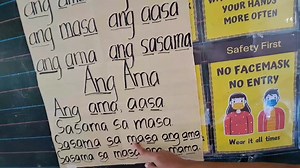 ang masa ang aasa
ang ama ang sasama
Ang Ama
Ang ama, aasa
Sasama sa masa
Sasama sa masa ang ama.
Sasama sa masa ang mama.
YOUR HANDS
MORE OFTEN
Safety First
NO FACEMASK
NO ENTRY
Wear it all times